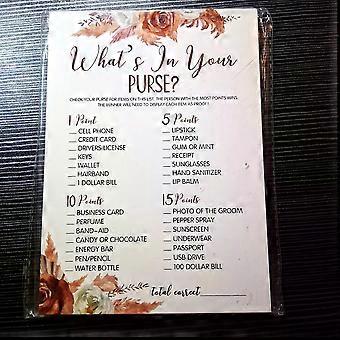 What's In Your
PURSE?
CHECK YOUR PURSE FOR ITEMS ON THIS LIST. THE PERSON WITH THE MOST POINTS WINS.
THE WINNER WILL NEED TO DISPLAY EACH ITEM AS PROOF!
1 Point
__ CELL PHONE
__ CREDIT CARD
__ DRIVERS LICENSE
__ KEYS
__ WALLET
__ HAIRBAND
__ 1 DOLLAR BILL
5 Points
__ LIPSTICK
__ TAMPON
__ GUM OR MINT
__ RECEIPT
__ SUNGLASSES
__ HAND SANITIZER
__ LIP BALM
10 Points
__ BUSINESS CARD
__ PERFUME
__ BAND-AID
__ CANDY OR CHOCOLATE
__ ENERGY BAR
__ PEN/PENCIL
__ WATER BOTTLE
15 Points
__ PHOTO OF THE GROOM
__ PEPPER SPRAY
__ SUNSCREEN
__ UNDERWEAR
__ PASSPORT
__ USB DRIVE
__ 100 DOLLAR BILL
total correct__________